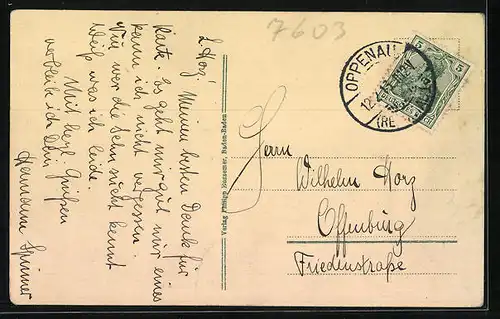 7603
L. Horz!
Meinen besten Dank für
Karte. Es geht mir gut nur eines
kann ich nicht vergessen.
Nur wer die Sehnsucht kennt
Weiß was ich leide.
Mit herzl. Grüßen
verbleib ich Dein
Hermann Spinner
Verlag Philipp Hussemer, Baden-Baden
OPPENAU
12.
5 5
Herrn
Wilhelm Horz
Offenburg
Friedenstraße